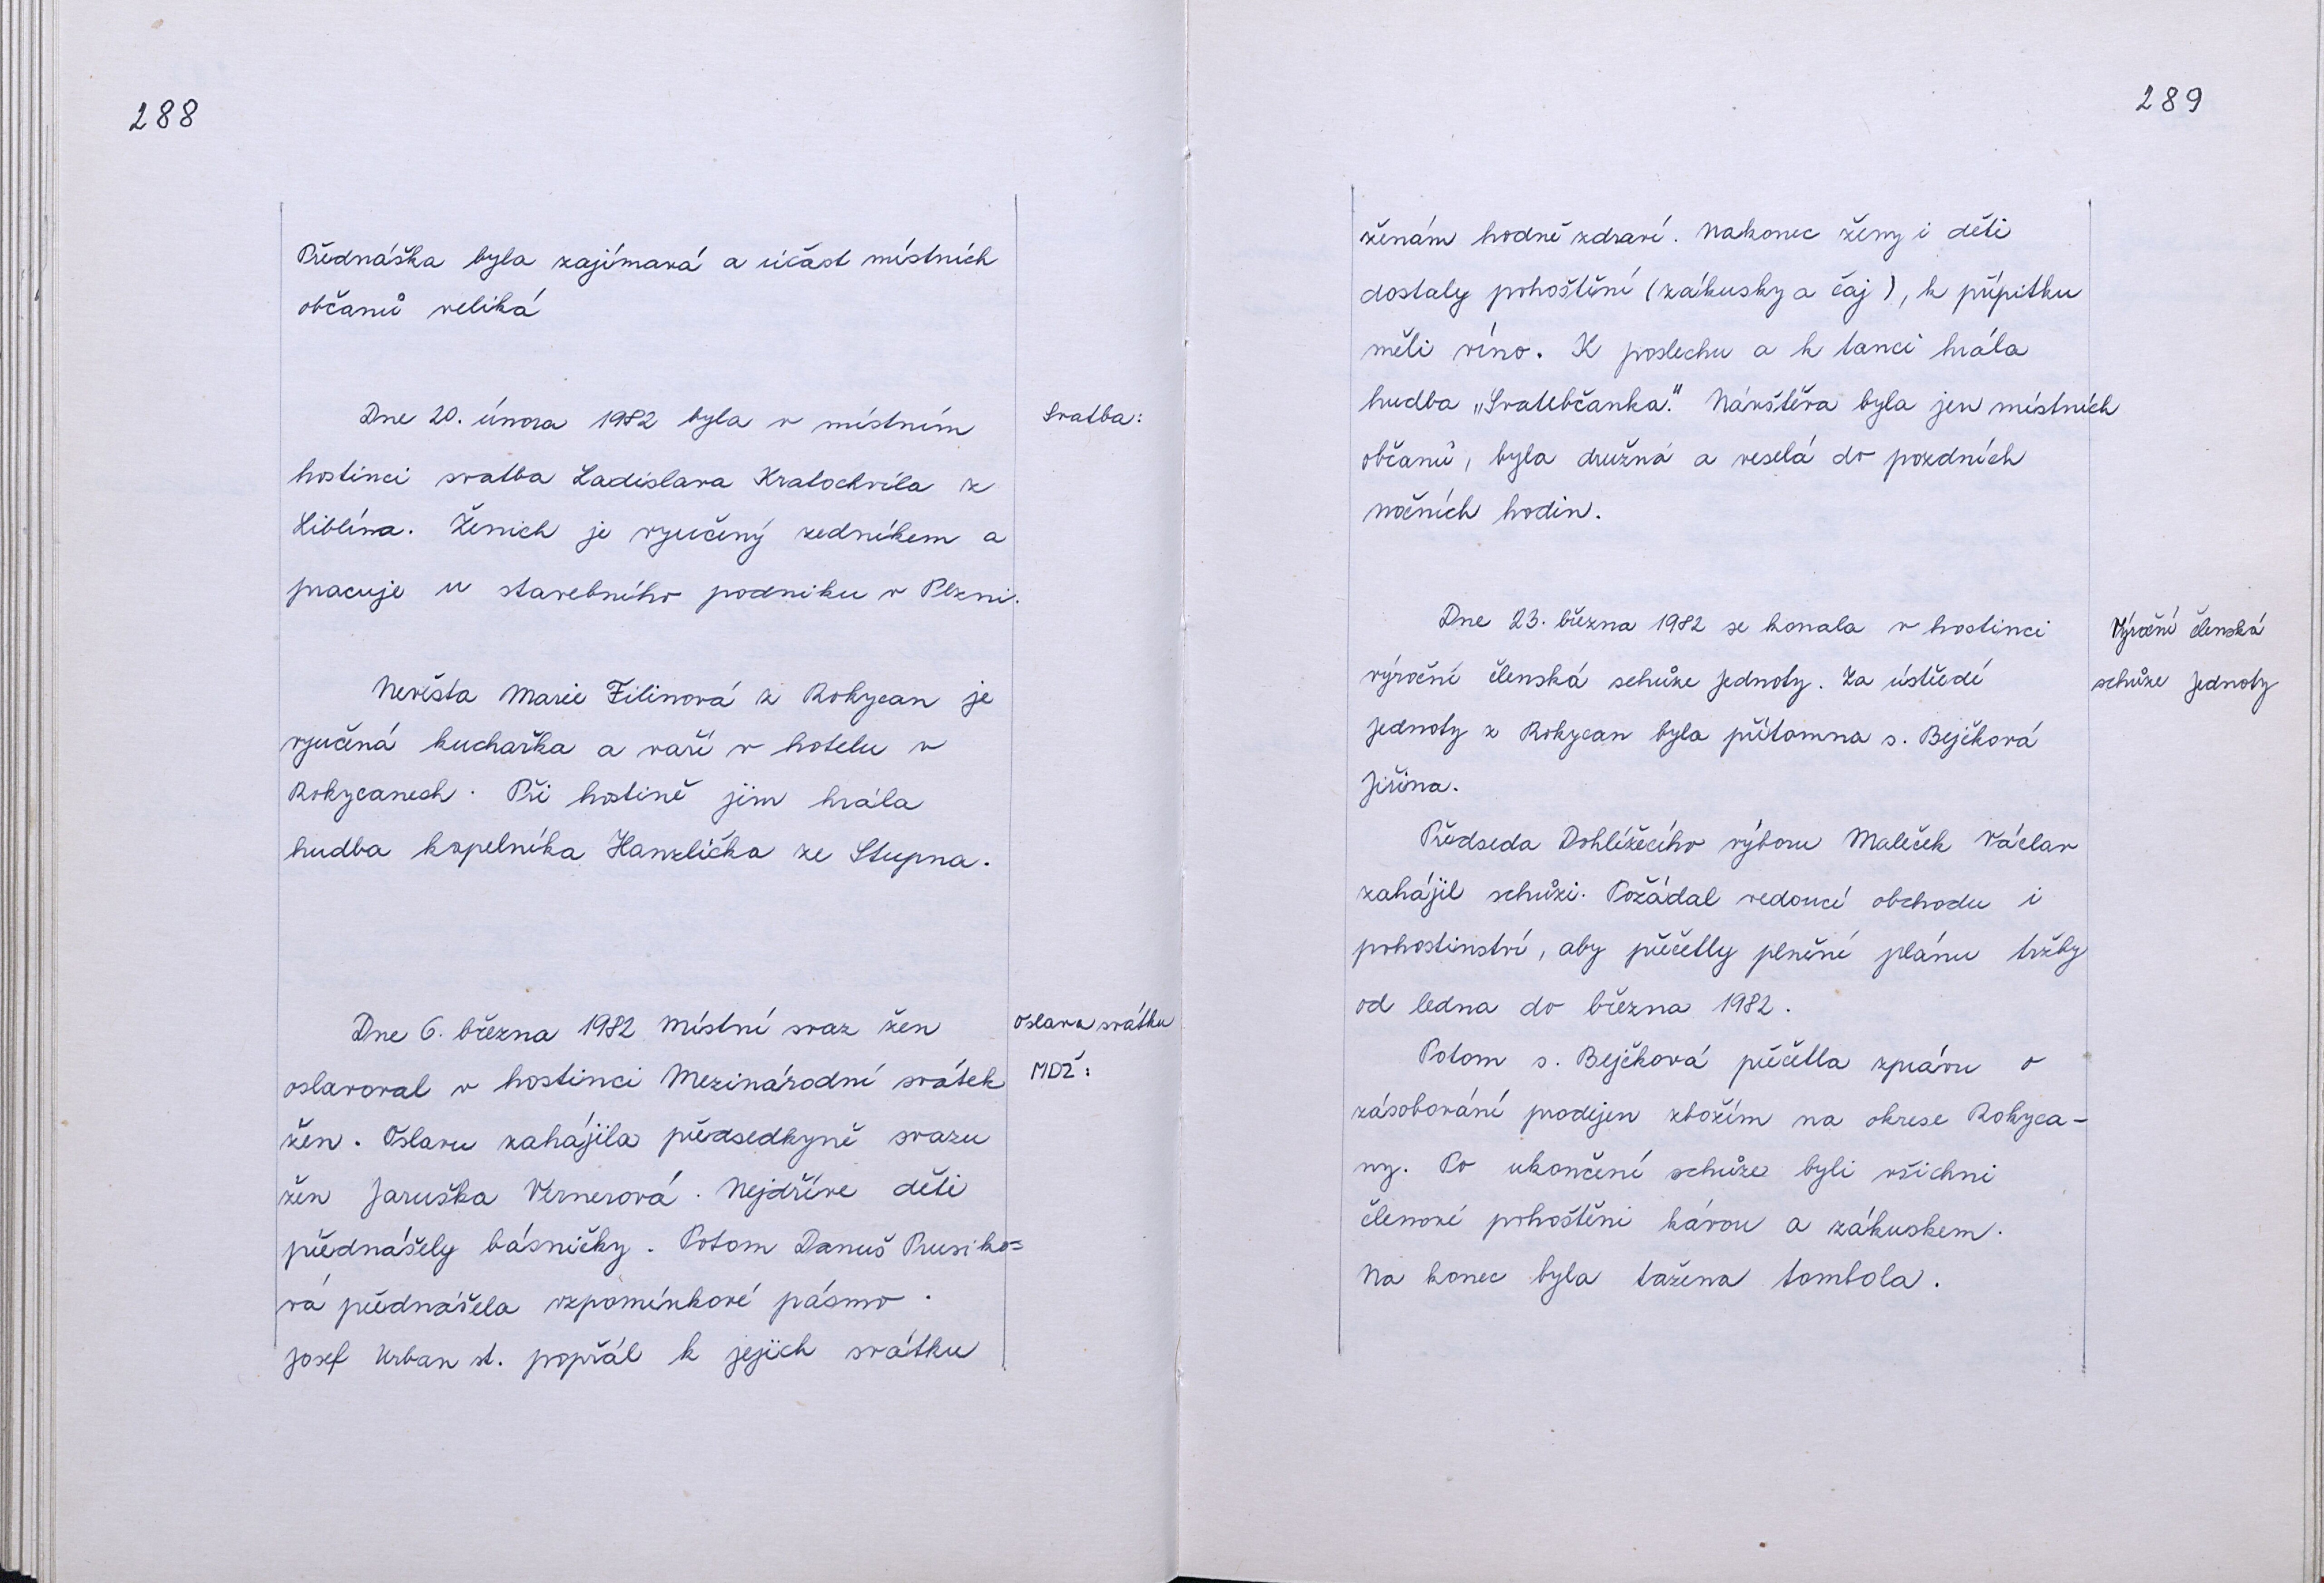 288
Přednáška byla zajímavá a účast místních
občanů veliká
Dne 20. února 1982 byla v místním
Svatba:
hostinci svatba Ladislava Kratochvíla z
Liblína. Ženich je vyučený zedníkem a
pracuje u stavebního podniku v Plzni.
Nevěsta Marie Filinová z Rokycan je
vyučená kuchařka a vaří v hotelu v
Rokycanech. Při hostině jim hrála
hudba kapelníka Hanzlíčka ze Stupna.
Dne 6. března 1982 Místní svaz žen
Oslava svátku
oslavoval v hostinci Mezinárodní svátek
MDŽ:
žen. Oslavu zahájila předsedkyně svazu
žen Jaruška Vernerová. Nejdříve děti
přednášely básničky. Potom Danuš Prusíko=
vá přednášela vzpomínkové pásmo.
Josef Urban st. popřál k jejich svátku
289
ženám hodně zdraví. Nakonec ženy i děti
dostaly pohoštění (zákusky a čaj), k přípitku
měli víno. K poslechu a k tanci hrála
hudba „Svatebčanka." Návštěva byla jen místních
občanů, byla družná a veselá do pozdních
nočních hodin.
Dne 23. března 1982 se konala v hostinci
Výroční členská
výroční členská schůze Jednoty. Za ústředí
schůze Jednoty
Jednoty z Rokycan byla přítomna s. Bejčková
Jiřina.
Předseda Dohlížecího výboru Maleček Václav
zahájil schůzi. Požádal vedoucí obchodu i
pohostinství, aby přečetly plnění plánu tržby
od ledna do března 1982.
Potom s. Bejčková přečetla zprávu o
zásobování prodejen zbožím na okrese Rokyca-
ny. Po ukončení schůze byli všichni
členové pohoštěni kávou a zákuskem.
Na konec byla tažena tombola.